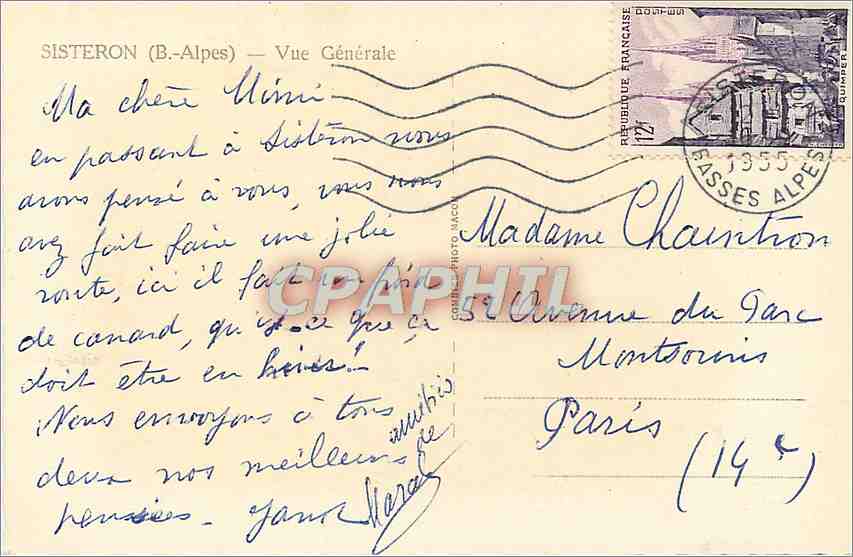 SISTERON (B.-Alpes) — Vue Générale
Ma chère Mimi
en passant à Sistéron nous
avons pensé à vous, vous nous
avez fait faire une jolie
route, ici il fait un froid
de canard, qu'est-ce que ça
doit être en hiver!
Nous envoyons à tous
deux nos meilleures
pensées -
amitiés
de
COMBIER PHOTO MACON
REPUBLIQUE FRANÇAISE
POSTES
12f
QUIMPER
SISTERON
1955
BASSES ALPES
Madame Chaintron
52 Avenue du Parc
Montsouris
Paris
(14e)
CPAPHIL